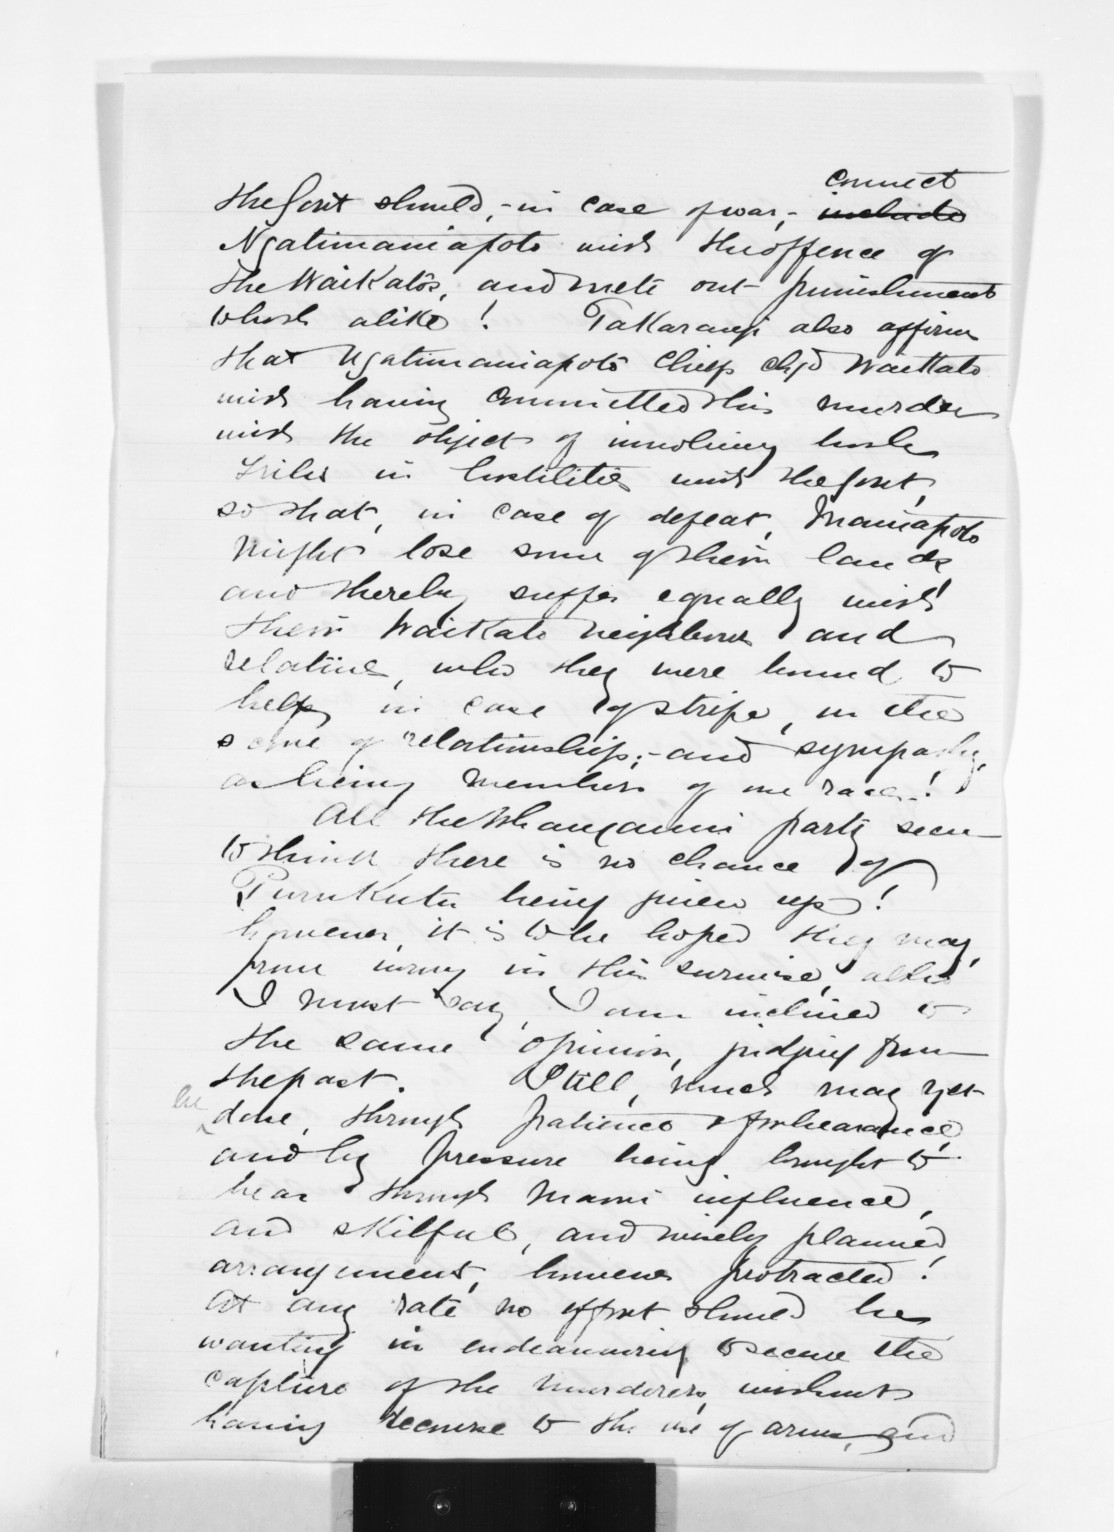 connect
the Govt should, - in case of war, - include
Ngatimaniapoto with the offence of
the Waikatos, and mete out punishment
to both alike! Takarangi also affirm
that Ngatimaniapoto Chiefs chgd Waikato
with having committed this murder
with the object of involving both
tribes in hostilities with the Govt,
so that, in case of defeat, Maniapoto
might lose some of their lands
and thereby suffer equally with
their Waikato neighbours and
relatives, who they were bound to
help in case of strife, on the
score of relationship; - and sympathy,
as being members of one race!
All the Whanganui party seem
to think there is no chance of
Purukutu being given up!
however, it is to be hoped they may,
prove wrong in this surmise, altho
I must say, I am inclined to
the same opinion, judging from
the past. Still, much may yet
be
done, through patience & forbearance,
and by pressure being brought to
bear through Maori influence,
and skilful, and wisely planned
arrangement, however protracted!
At any rate no effort should be
wanting in endeavouring to secure the
capture of the murderers, without
having recourse to the use of arms, and